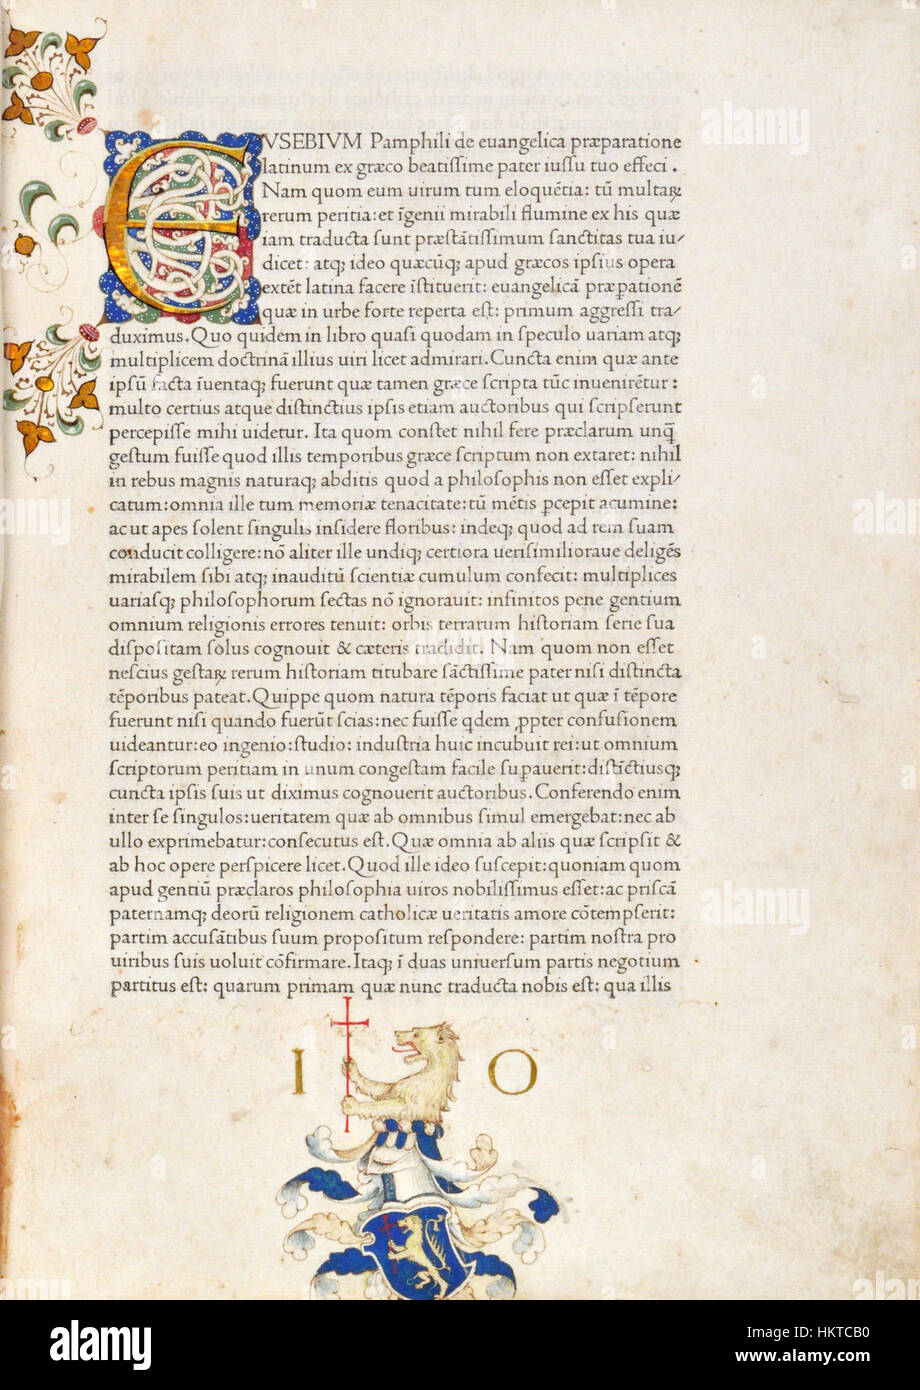 EVSEBIVM Pamphili de euangelica præparatione
latinum ex græco beatiſſime pater iuſſu tuo effeci.
Nam quom eum uirum tum eloquẽtia: tũ multaꝝ
rerum peritia: et ĩgenii mirabili flumine ex his quæ
iam traducta ſunt præſtãtiſſimum ſanctitas tua iu/
dicet: atq; ideo quæcũq; apud græcos ipſius opera
extẽt latina facere iſtituerit: euangelicã præpationẽ
quæ in urbe forte reperta eſt: primum aggreſſi tra/
duximus. Quo quidem in libro quaſi quodam in ſpeculo uariam atq;
multiplicem doctrinã illius uiri licet admirari. Cuncta enim quæ ante
ipſũ facta ĩuentaq; fuerunt quæ tamen græce ſcripta tũc inuenirẽtur:
multo certius atque diſtinctius ipſis etiam auctoribus qui ſcripſerunt
percepiſſe mihi uidetur. Ita quom conſtet nihil fere præclarum unq̃
geſtum fuiſſe quod illis temporibus græce ſcriptum non extaret: nihil
in rebus magnis naturaq; abditis quod a philoſophis non eſſet expli/
catum: omnia ille tum memoriæ tenacitate: tũ mẽtis ꝑcepit acumine:
ac ut apes ſolent ſingulis inſidere floribus: indeq; quod ad rem ſuam
conducit colligere: nõ aliter ille undiq; certiora ueriſimilioraue deligẽs
mirabilem ſibi atq; inauditũ ſcientiæ cumulum confecit: multiplices
uariaſq; philoſophorum ſectas nõ ignorauit: infinitos pene gentium
omnium religionis errores tenuit: orbis terrarum hiſtoriam ſerie ſua
diſpoſitam ſolus cognouit & cæteris tradidit. Nam quom non eſſet
neſcius geſtaꝝ rerum hiſtoriam titubare ſãctiſſime pater niſi diſtincta
tẽporibus pateat. Quippe quom natura tẽporis faciat ut quæ ĩ tẽpore
fuerunt niſi quando fuerũt ſcias: nec fuiſſe qdem ꝓpter confuſionem
uideantur: eo ingenio: ſtudio: induſtria huic incubuit rei: ut omnium
ſcriptorum peritiam in unum congeſtam facile ſuꝑauerit: diſtĩctiuſq;
cuncta ipſis ſuis ut diximus cognouerit auctoribus. Conferendo enim
inter ſe ſingulos: ueritatem quæ ab omnibus ſimul emergebat: nec ab
ullo exprimebatur: conſecutus eſt. Quæ omnia ab aliis quæ ſcripſit &
ab hoc opere perſpicere licet. Quod ille ideo ſuſcepit: quoniam quom
apud gentiũ præclaros philoſophia uiros nobiliſſimus eſſet: ac priſcã
paternamq; deorũ religionem catholicæ ueritatis amore cõtempſerit:
partim accuſãtibus ſuum propoſitum reſpondere: partim noſtra pro
uiribus ſuis uoluit cõfirmare. Itaq; ĩ duas uniuerſum partis negotium
partitus eſt: quarum primam quæ nunc traducta nobis eſt: qua illis
I O
alamy
Image ID: HKTCB0
www.alamy.com